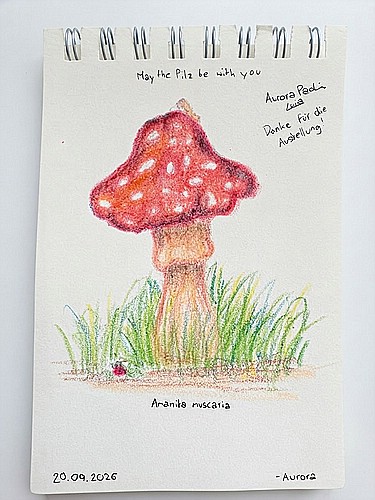 May the Pilz be with you
Aurora Padi
Luisa
Danke für die
Austellung!
Amanita muscaria
20.09.2026
-Aurora